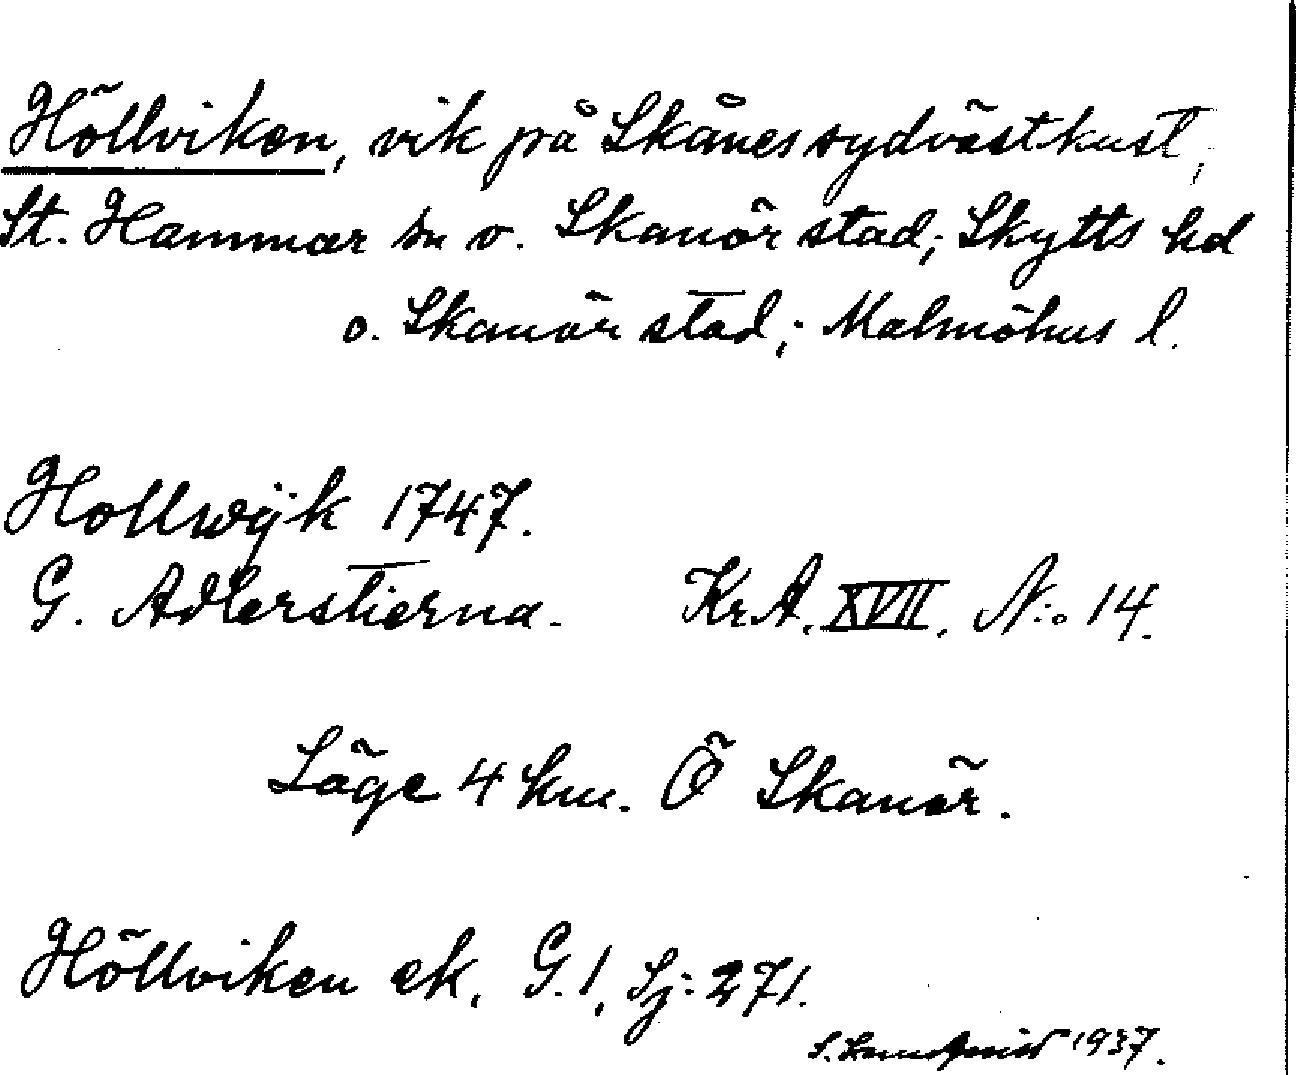 Höllviken, vik på Skånes sydvästkust,
St. Hammar sn o. Skanör stad; Skytts hd
o. Skanör stad; Malmöhus l.
Hollwÿk 1747.
G. Adlerstierna. Kr.A. XVII. N:o 14.
Läge 4 km. Ö Skanör.
Höllviken ek. G.1, Sj: 271.
S. 1937.